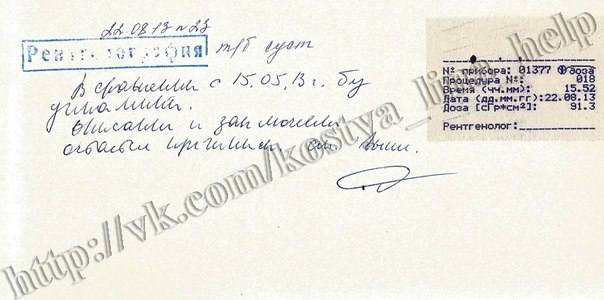 22.08.13 № 23
Рентгенография т/б суст
В сравнении с 15.05.13 г. бу
динамики.
Описание и заключение
см выше.
№ прибора: 01377 доза
Процедура №: 018
Время (чч.мм): 15.52
Дата (дд.мм.гг):22.08.13
Доза [сГр*см²]: 91.3
Рентгенолог:
http://vk.com/kostya_ help